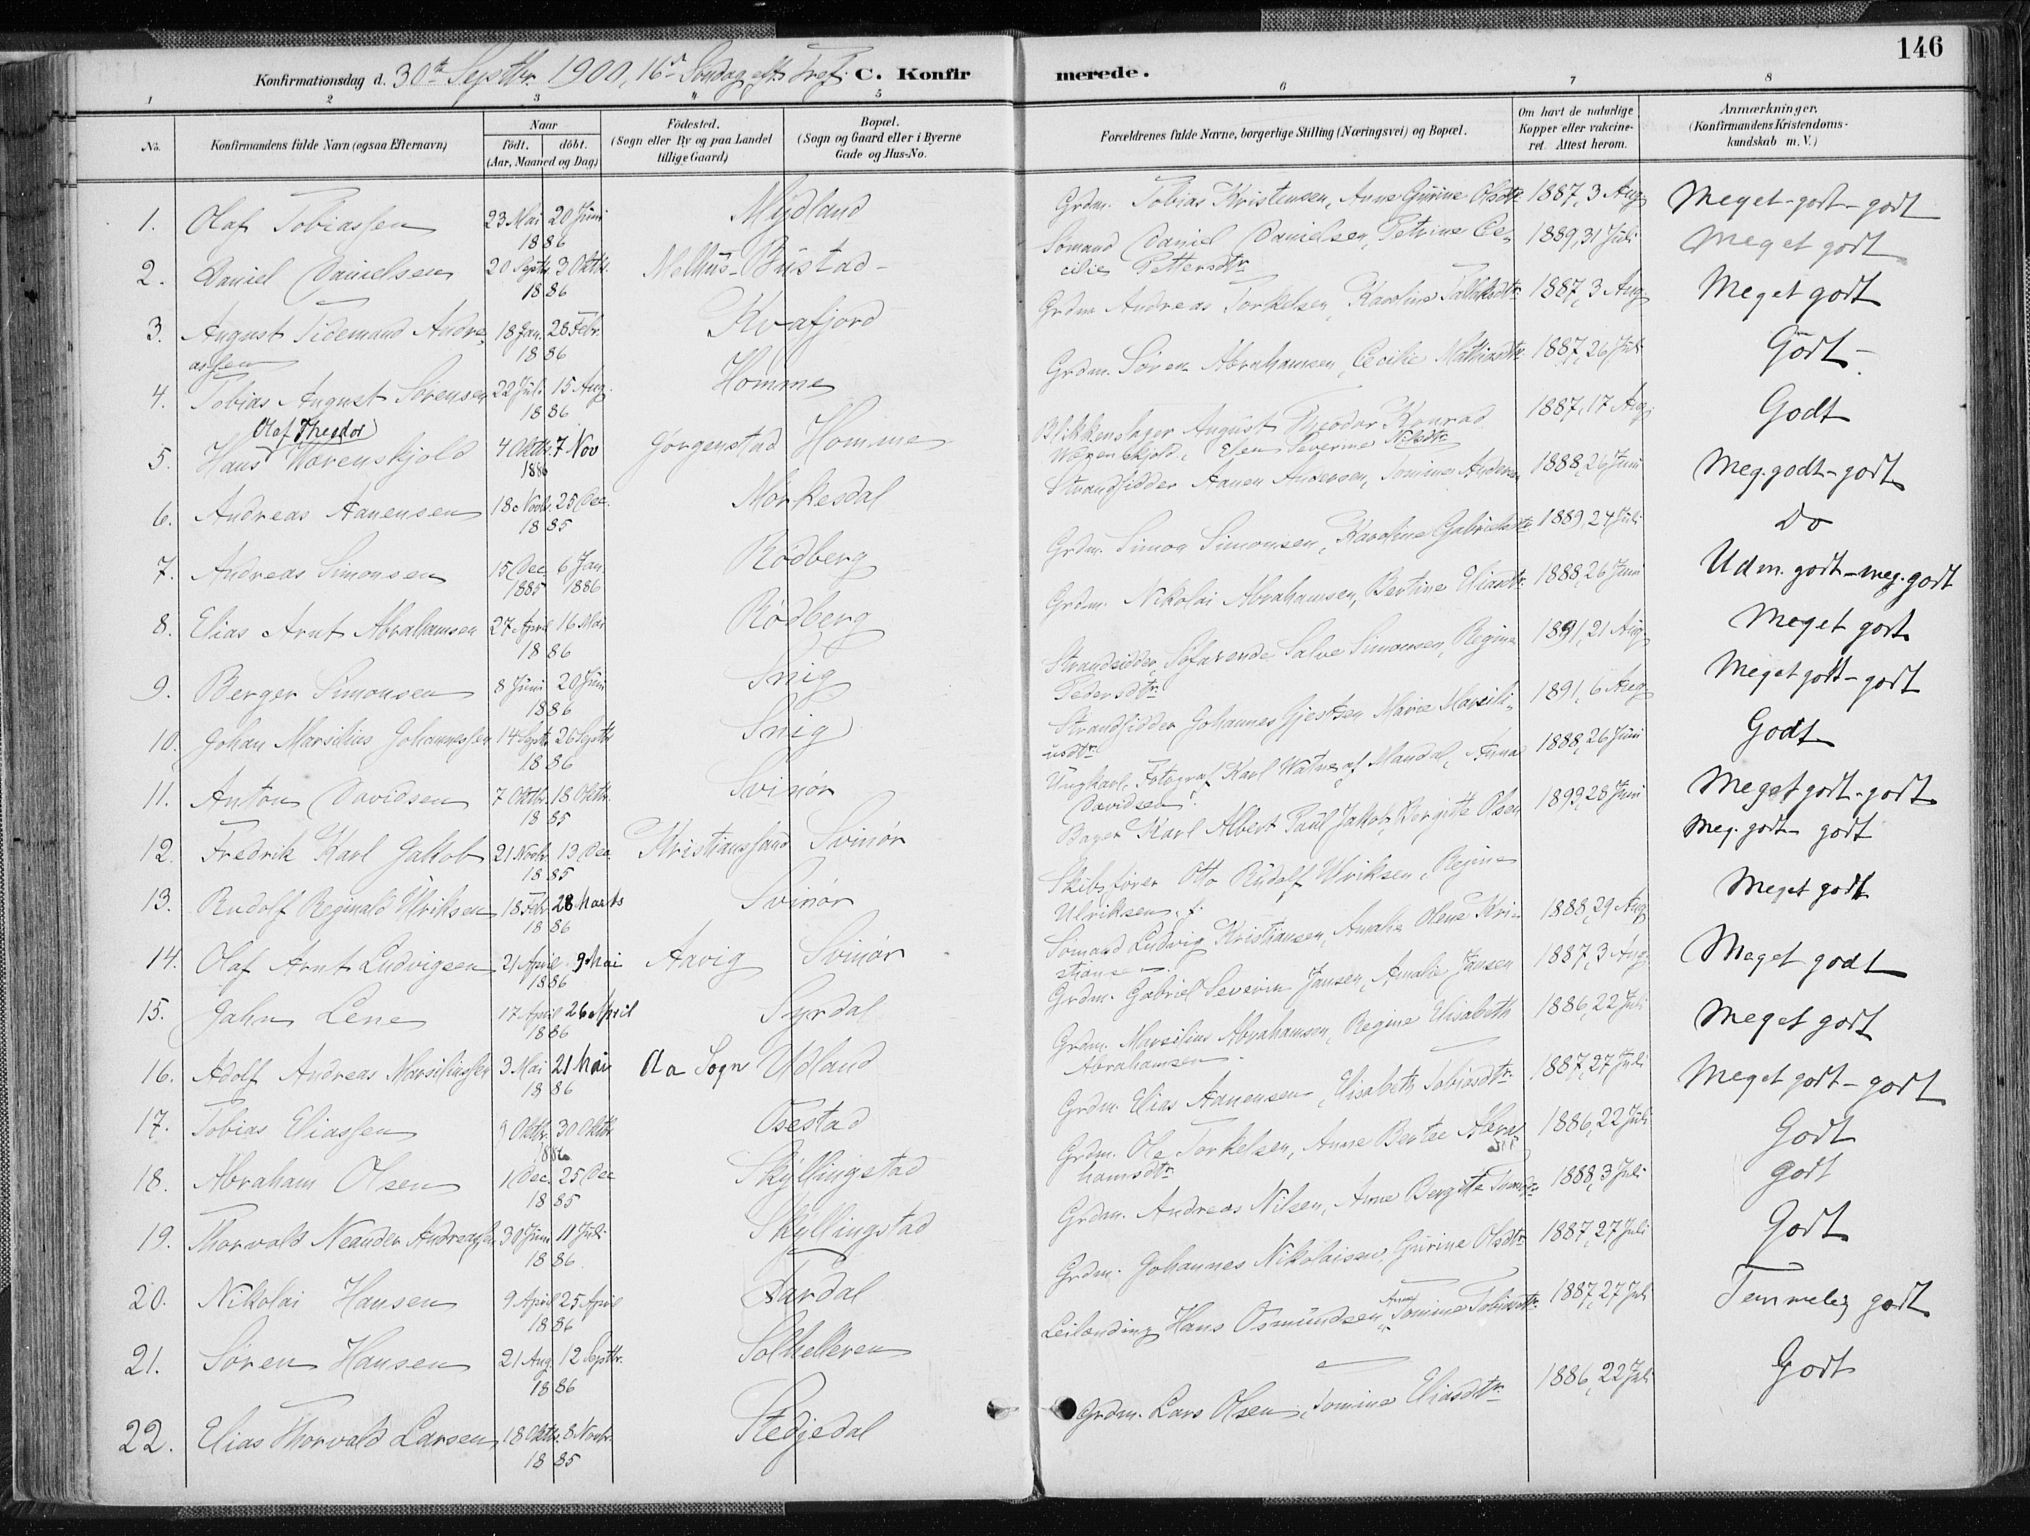 146
Konfirmationsdag d. 30te Septbr. 1900, 16de Søndag eft. Tref. C. Konfirmerede.
1 2 3 4 5 6 7 8
No. Konfirmandens fulde Navn (ogsaa Efternavn) Naar født. døbt. (Aar, Maaned og Dag) Fødested. (Sogn eller By og paa Landet tillige Gaard) Bopæl. (Sogn og Gaard eller i Byerne Gade og Hus-No. Forældrenes fulde Navne, borgerlige Stilling (Næringsvei) og Bopæl. Om havt de naturlige Kopper eller vakcineret. Attest herom. Anmærkninger. (Konfirmandens Kristendomskundskab m. V.)
1. Olaf Tobiassen 23 Mai 20 Juni 1886 Mydland Grdm. Tobias Kristensen, Anne Gurine Olsdtr 1887, 3 Aug Meget-godt-godt
2. Daniel Danielsen 20 Septbr 3 Oktbr. 1886 Melhus- Bustad- Sømand Daniel Danielsen, Petrine Cecilie Pettersdtr 1889, 31 Juli Meget godt
3. August Tidemand Andreassen 18 Jan. 28 Febr. 1886 Kvafjord Grdm Andreas Torkelsen, Karoline Tallaksdtr 1887, 3 Aug Meget godt
4. Tobias August Sørensen 22 Juli 15 Aug. 1886 Homme Grdm. Søren Abrahamsen, Cecilie Mathiasdtr 1887, 26 Juli Godt-
5. Hans Olaf Theodor Værenskjold 4 Oktbr. 7 Nov 1886 Jørgenstad Homme Blikkenslager August Theodor Konrad Værenskjold, Elen Severine Nilsdtr 1887, 17 Aug. Godt
6. Andreas Aanensen 18 Novbr. 25 Dec. 1885 Morkesdal Strandsidder Aanen Andersen, Tomine Andersen 1888, 26 Juni Meg. godt-godt
7. Andreas Simonsen 15 Dec 6 Jan. 1885 1886 Rødberg Grdm. Simon Simonsen, Karoline Gabrielsdtr 1889, 24 Juli Do
8. Elias Arnt Abrahamsen 27 April 16 Mai 1886 Rødberg Grdm. Nikolai Abrahamsen, Bertine Eliasdtr. 1888, 26 Juni Udm. godt-meg. godt
9. Berger Simonsen 8 Juni 20 Juni 1886 Snig Strandsidder, Søfarende Salve Simonsen, Regine Pedersdtr. 1891, 21 Aug Meget godt
10. Johan Marsilius Johannessen 14 Septbr 26 Septbr 1886 Snig Strandsidder Johannes Gjertsen Marie Marsiliusdtr 1891, 6 Aug Meget godt-godt
11. Anton Davidsen 7 Oktbr. 18 Oktbr. 1885 Svinør Ungkarl, Fotograf Karl Watne af Mandal, Anna Davidsen. 1888, 26 Juni Godt
12. Fredrik Karl Jakob 21 Novbr. 13 Dec. 1885 Kristianssand Svinør Bager Karl Albert Paul Jakob, Birgitte Olsen 1899, 28 Juni Meget godt-godt
13. Rudolf Reginald Ulriksen 18 Febr 28 Marts 1886 Svinør Skibsfører Otto Rudolf Ulriksen, Regine Ulriksen, f. Meg. godt- godt
14. Olaf Arnt Ludvigsen 21 April 9 Mai 1886 Aavig Svinør Sømand Ludvig Kristiansen, Amalie Olene Kristiansen. 1888, 29 Aug Meget godt
15. Jahn Lene 17 April 26 April 1886 Syrdal Grdm. Gabriel Severin Jansen, Amalie Jansen 1887, 3 Aug Meget godt
16. Adolf Andreas Marsiliussen 3 Mai 21 Mai 1886 Oa Sogn Udland Grdm. Marsilius Abrahamsen, Regine Elisabeth Abrahamsen. 1886, 22 Juli Meget godt
17. Tobias Eliassen 9 Oktbr 30 Oktbr 1886 Osestad Grdm. Elias Aanensen, Elisabeth Tobiasdtr. 1887, 27 Juli Meget godt-godt
18. Abraham Olsen 1 Dec. 25 Dec 1885 Skyllingstad Grdm. Ole Torkelsen, Anne Bertee Abrahamsdtr. 1886, 22 Juli Godt
19. Thorvald Neander Andreassen 30 Juni 11 Juli 1886 Skyllingstad Grdm. Andreas Nilsen, Anne Bergitte 1888, 3 Juli godt
20. Nikolai Hansen 9 April 25 April 1886 Tardal Grdm. Johannes Nikolaisen, Gurine Olsdtr 1887, 27 Juli Godt
21. Søren Hansen 21 Aug. 12 Septbr. 1886 Solhelleren Leilænding Hans Osmundsen, Anne Tomine Tobiasdtr. 1887, 27 Juli Temmelig godt
22. Elias Thorvald Larsen 18 Oktbr. 8 Novbr. 1885 Stedjedal Grdm. Lars Olsen, Tomine Eliasdtr 1886, 22 Juli Godt